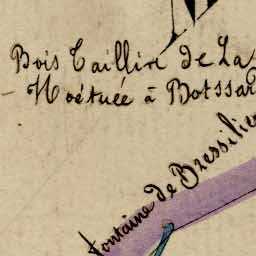 Bois Taillire de La
Noëtuée à Botssar
fontaine de Bressilie